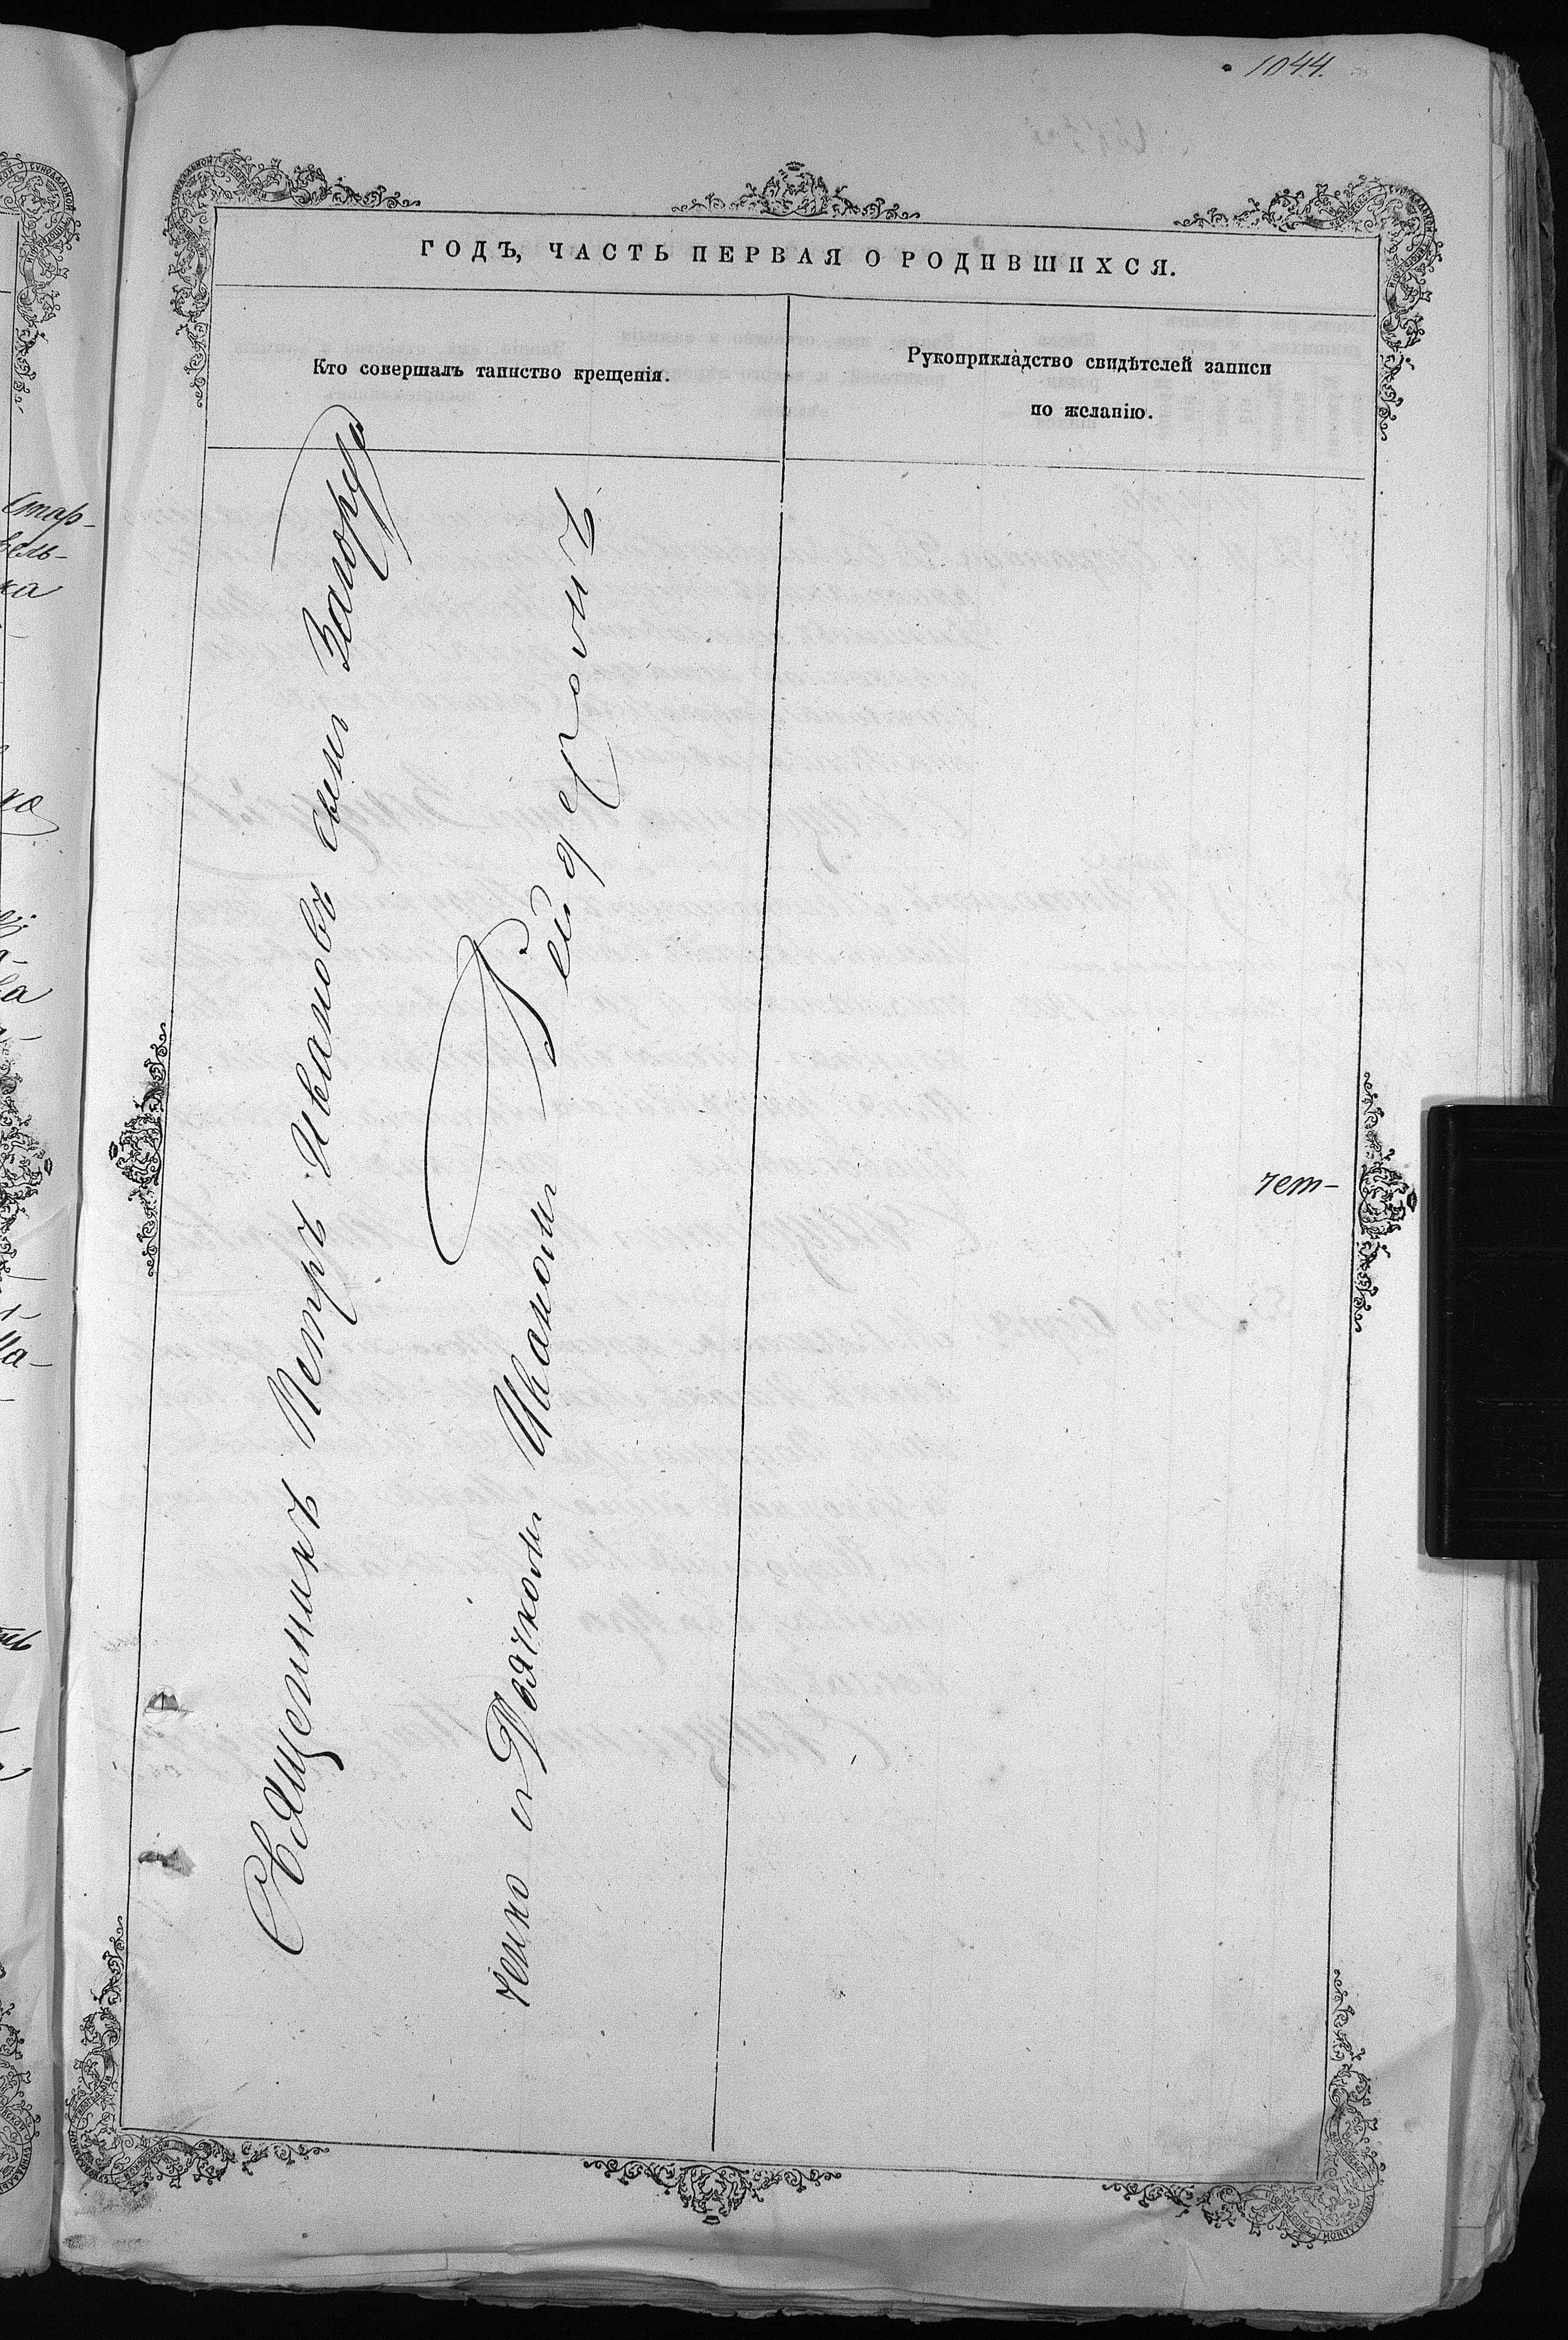 1044.
ГОДЪ, ЧАСТЬ ПЕРВАЯ О РОДИВШИХСЯ.
Кто совершалъ таинство крещенія.
Рукоприкладство свидѣтелей записи
по желанію.
Священникъ Петръ Ивановъ сынъ Запоро
ченко и Дьячкомъ Иваномъ Рейдеровичъ
чет-
Стар-
вель-
ка